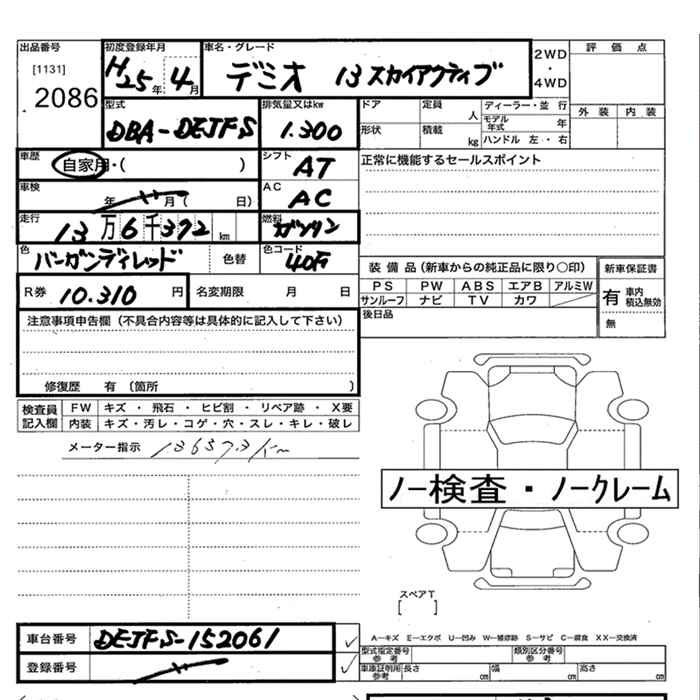 出品番号 初度登録年月 車名・グレード 2WD ・ 4WD 評価点
[1131] 2086 H25年4月 デミオ 13スカイアクティブ 外装 内装
型式 排気量又はkw ドア 定員 人 ディーラー・並行
DBA-DEJFS 1.300 形状 積載 kg モデル年式 年 ハンドル 左・右
車歴 自家用・( ) シフト AT 正常に機能するセールスポイント
車検 年 月( 日) AC AC
走行 13万6千372km 燃料 ガソリン
色 バーガンディレッド 色替 色コード
装備品(新車からの純正品に限り○印) 新車保証書
R券 10.310円 名変期限 月 日
PS PW ABS エアB アルミW
サンルーフ ナビ TV カワ
有 車内積込無効
無
後日品
注意事項申告欄(不具合内容等は具体的に記入して下さい)
修復歴 有(箇所 )
検査員記入欄 FW キズ・飛石・ヒビ割・リペア跡・X要
内装 キズ・汚レ・コゲ・穴・スレ・キレ・破レ
メーター指示 136373km
ノー検査・ノークレーム
スペアT
[ ]
車台番号 DEJFS-152061
A-キズ E-エクボ U-凹み W-補修跡 S-サビ C-腐食 XX-交換済
型式指定番号 参考 類別区分番号 参考
登録番号
車庫証明用 参考 長さ cm 幅 cm 高さ cm